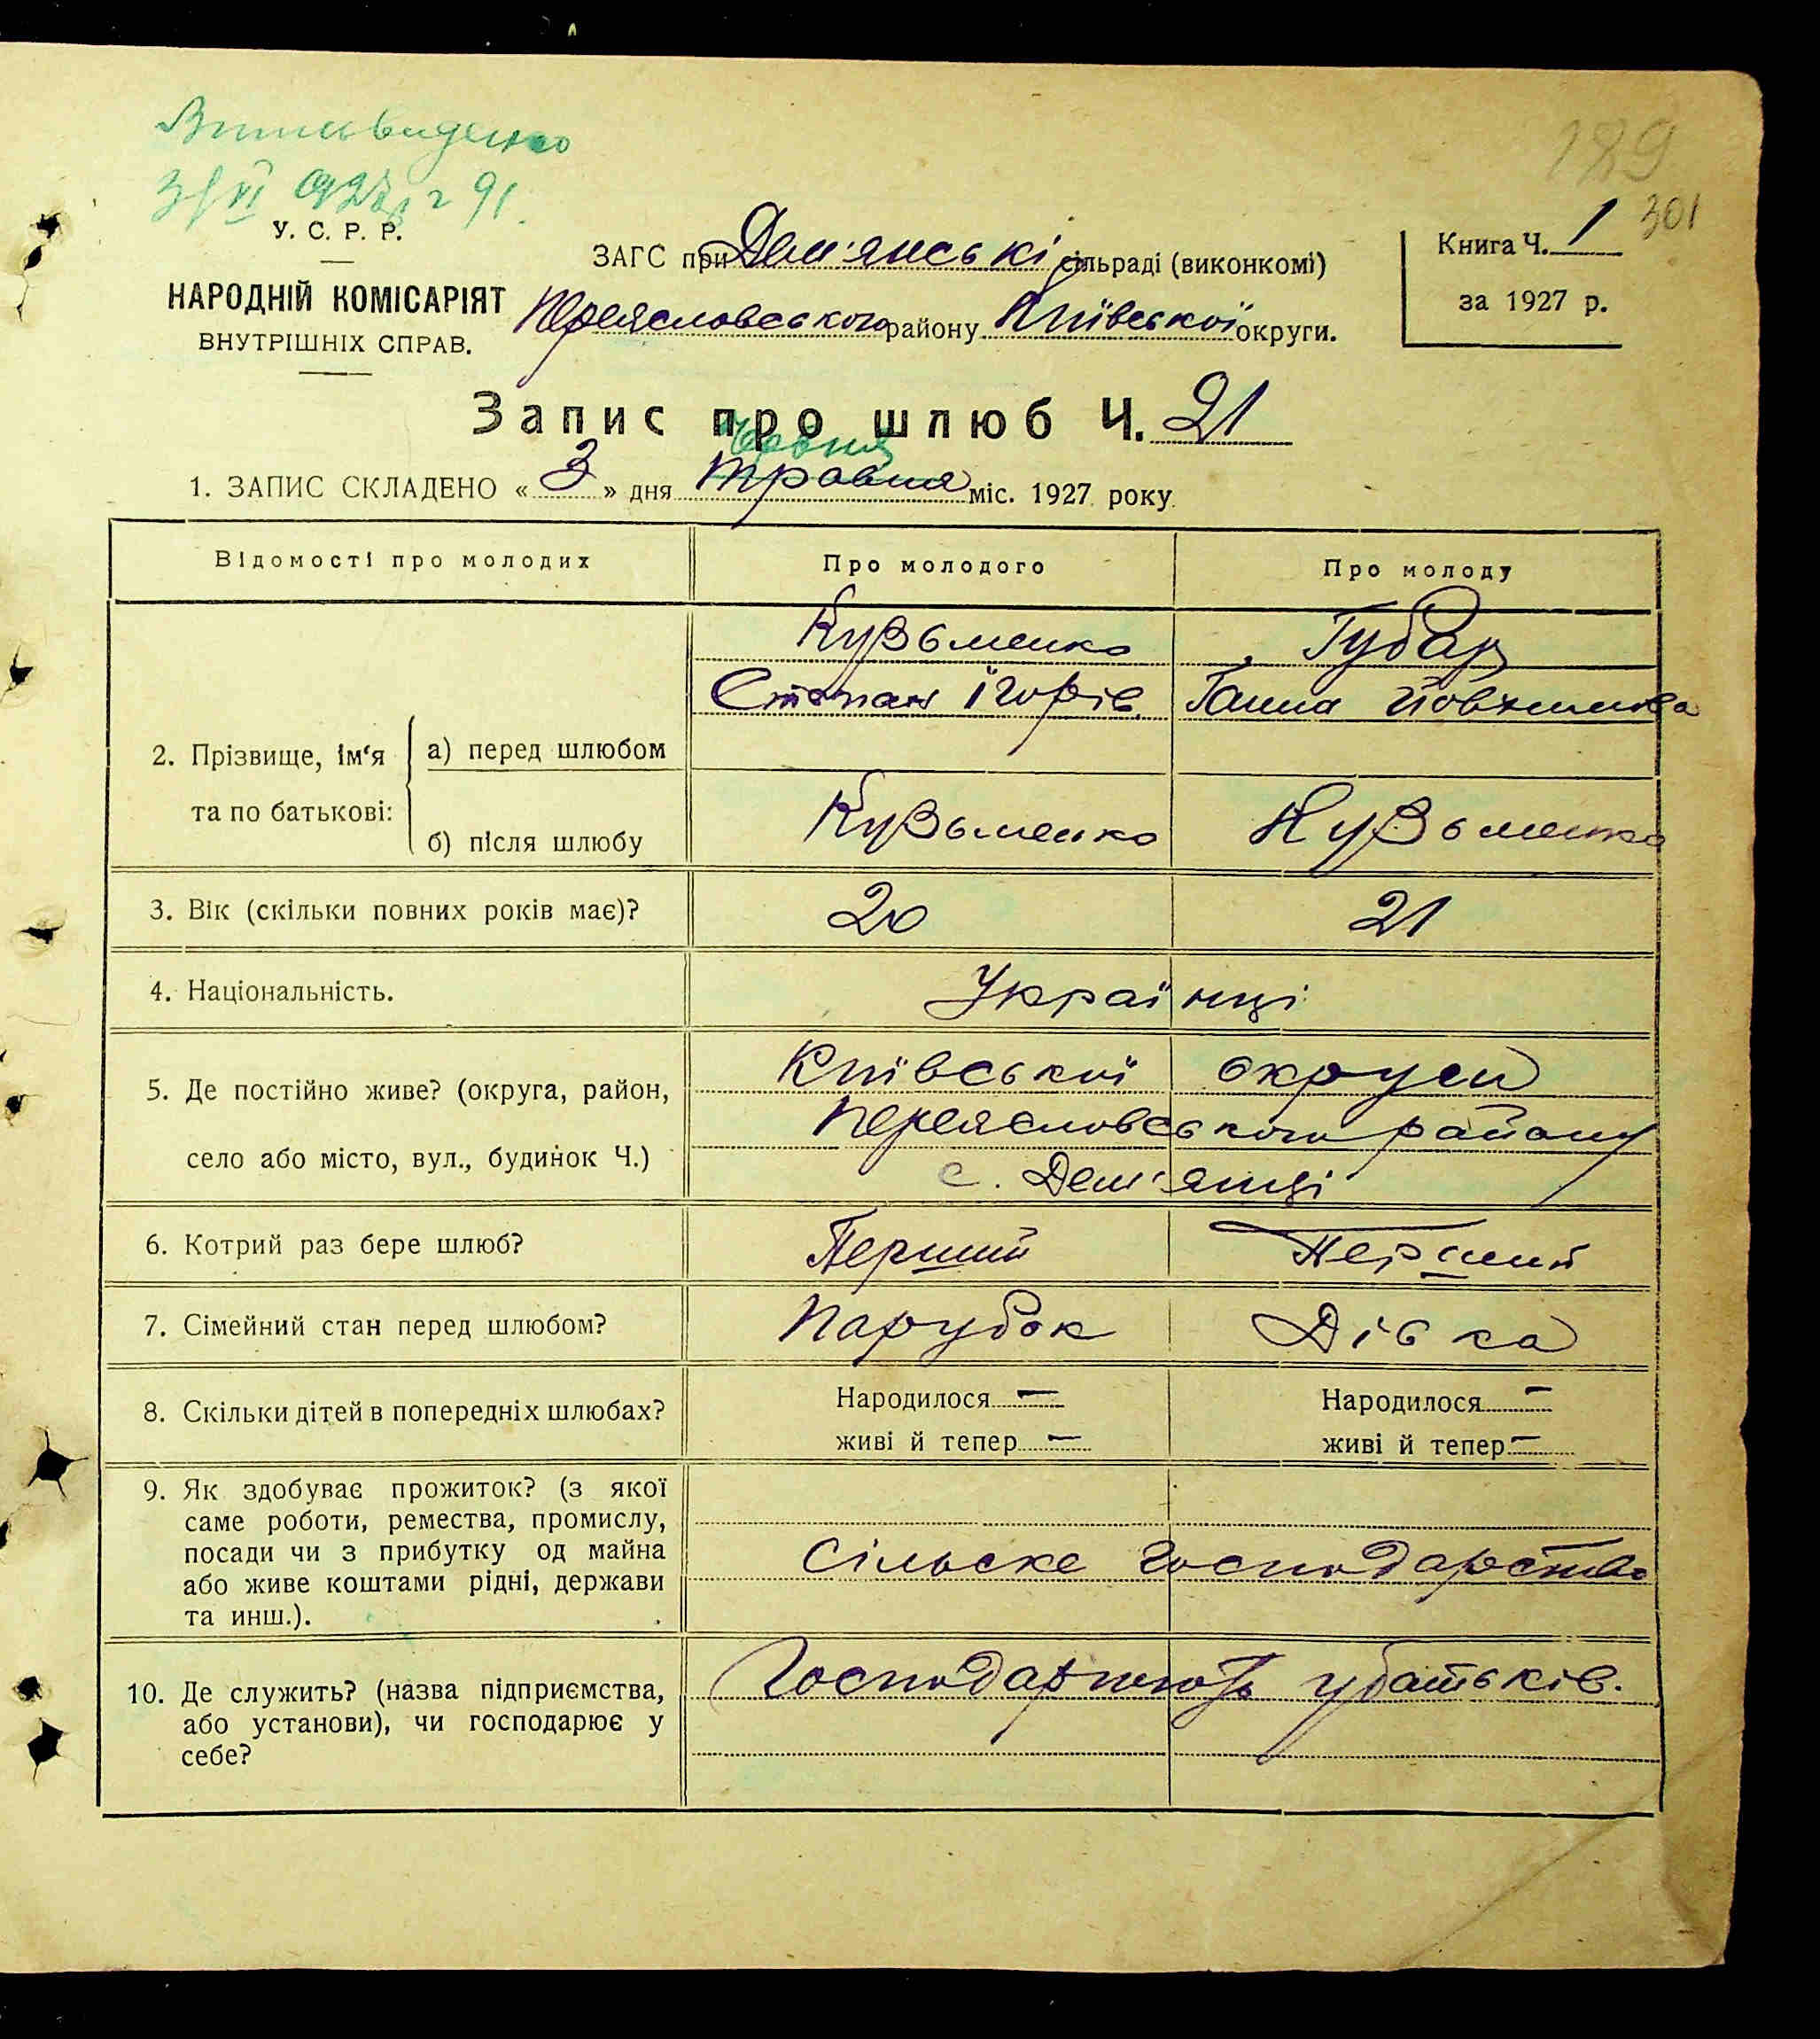 Витяг видено
3/VI 927 р 91.
189
301
У. С. Р. Р.
НАРОДНІЙ КОМІСАРІЯТ
ВНУТРІШНІХ СПРАВ.
ЗАГС при Дем'янські сільраді (виконкомі)
Переясловського району Київської округи.
Книга Ч. 1
за 1927 р.
Запис про шлюб Ч. 21
червня
1. ЗАПИС СКЛАДЕНО « 3 » дня травня міс. 1927 року.
Відомості про молодих
Про молодого
Про молоду
2. Прізвище, ім'я та по батькові:
а) перед шлюбом
Кузьменко
Степан Їгорів
Губар
Ганна Йовхимова
б) після шлюбу
Кузьменко
Кузьменко
3. Вік (скільки повних років має)?
20
21
4. Національність.
Українці
5. Де постійно живе? (округа, район,
село або місто, вул., будинок Ч.)
Київської округи
Переясловського району
с. Дем'янці
6. Котрий раз бере шлюб?
Перший
Перший
7. Сімейний стан перед шлюбом?
Парубок
Дівка
8. Скільки дітей в попередніх шлюбах?
Народилося —
живі й тепер —
Народилося —
живі й тепер —
9. Як здобуває прожиток? (з якої
саме роботи, ремества, промислу,
посади чи з прибутку од майна
або живе коштами рідні, держави
та инш.).
Сільске господарство
10. Де служить? (назва підприємства,
або установи), чи господарює у
себе?
Господарюють у батьків.